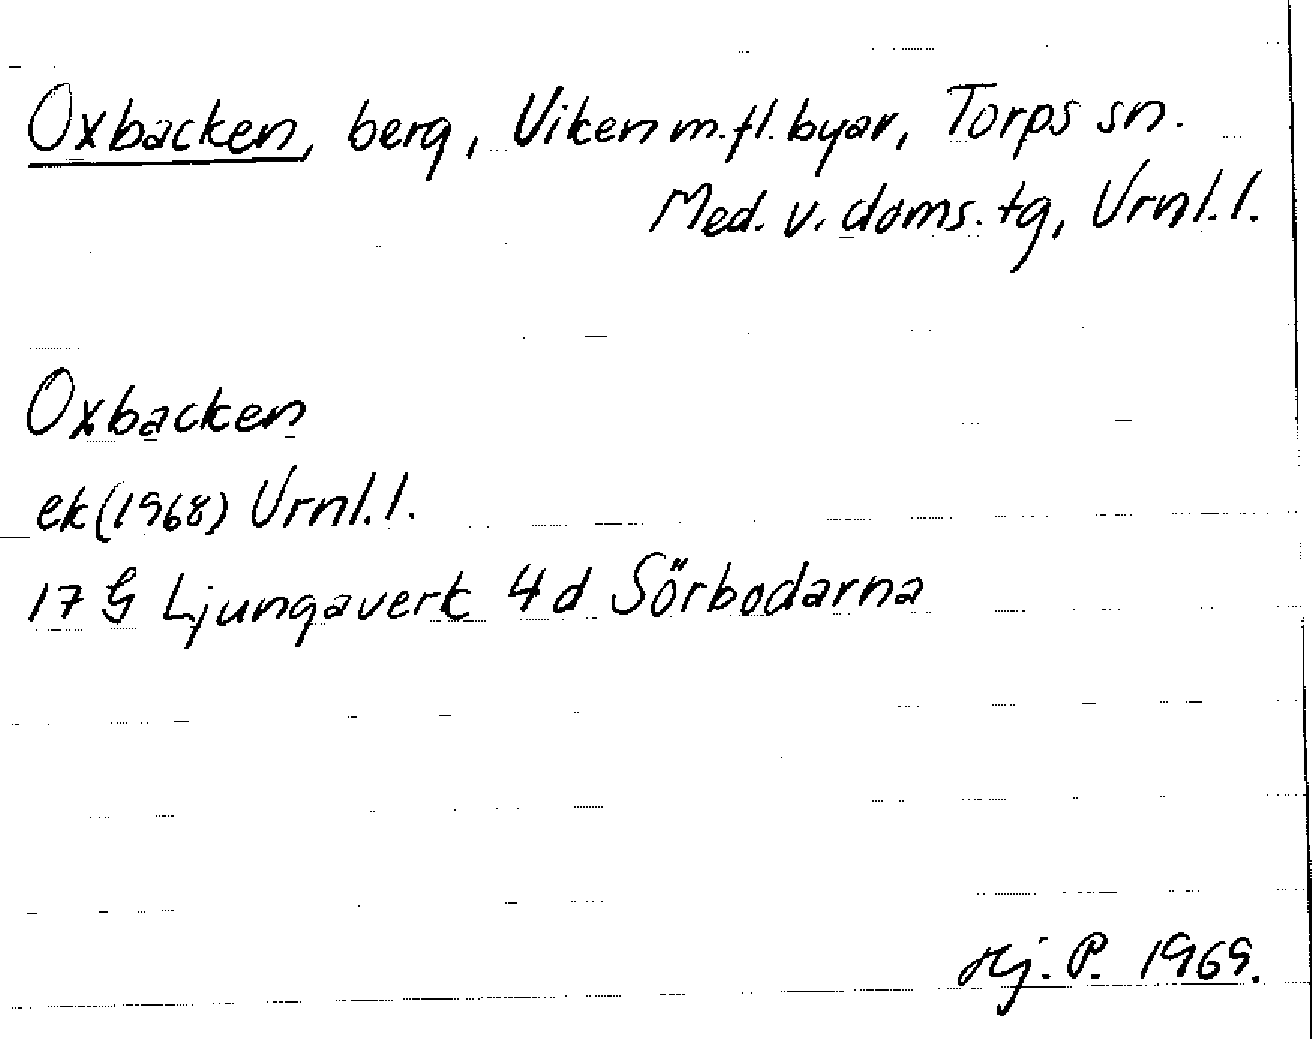 Oxbacken, berg, Viken m.fl. byar, Torps sn.
Med. v. doms. tg, Vrnl. l.
Oxbacken
ek (1968) Vrnl. l.
17 G Ljungaverk 4 d Sörbodarna
Hj. P. 1969.